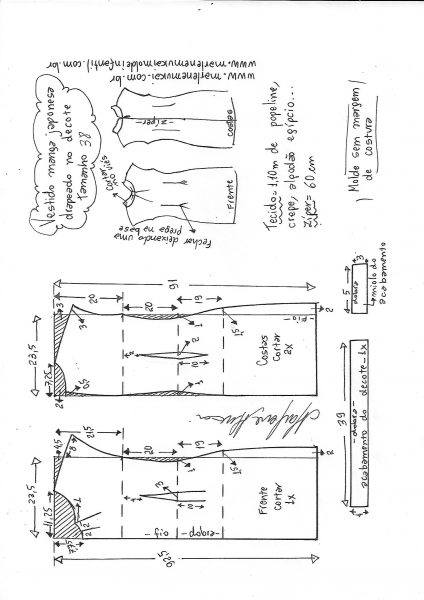 Vestido manga japonesa
drapeado no decote
tamanho 38
www.marlenemukai.com.br
www.marlenemukaimoldeinfantil.com.br
Cortar
no viés
Fechar deixando uma
prega na base
Frente
zíper
costas
Tecido=1,10m de popeline,
crepe, algodão egípcio...
zíper= 60 cm
Molde sem margem
de costura
91
20
20
19
23,5
7,25
2
3
3
1
2
10
1,5
2
fio
Costas
cortar
2x
92,5
22,5
11,25
4,5
21,5
20
19
7
2
3
10
1,5
2
fio
dobra
Frente
cortar
1x
39
dobra
acabamento do decote-1x
4
5
3
dobra
miolo do
acabamento